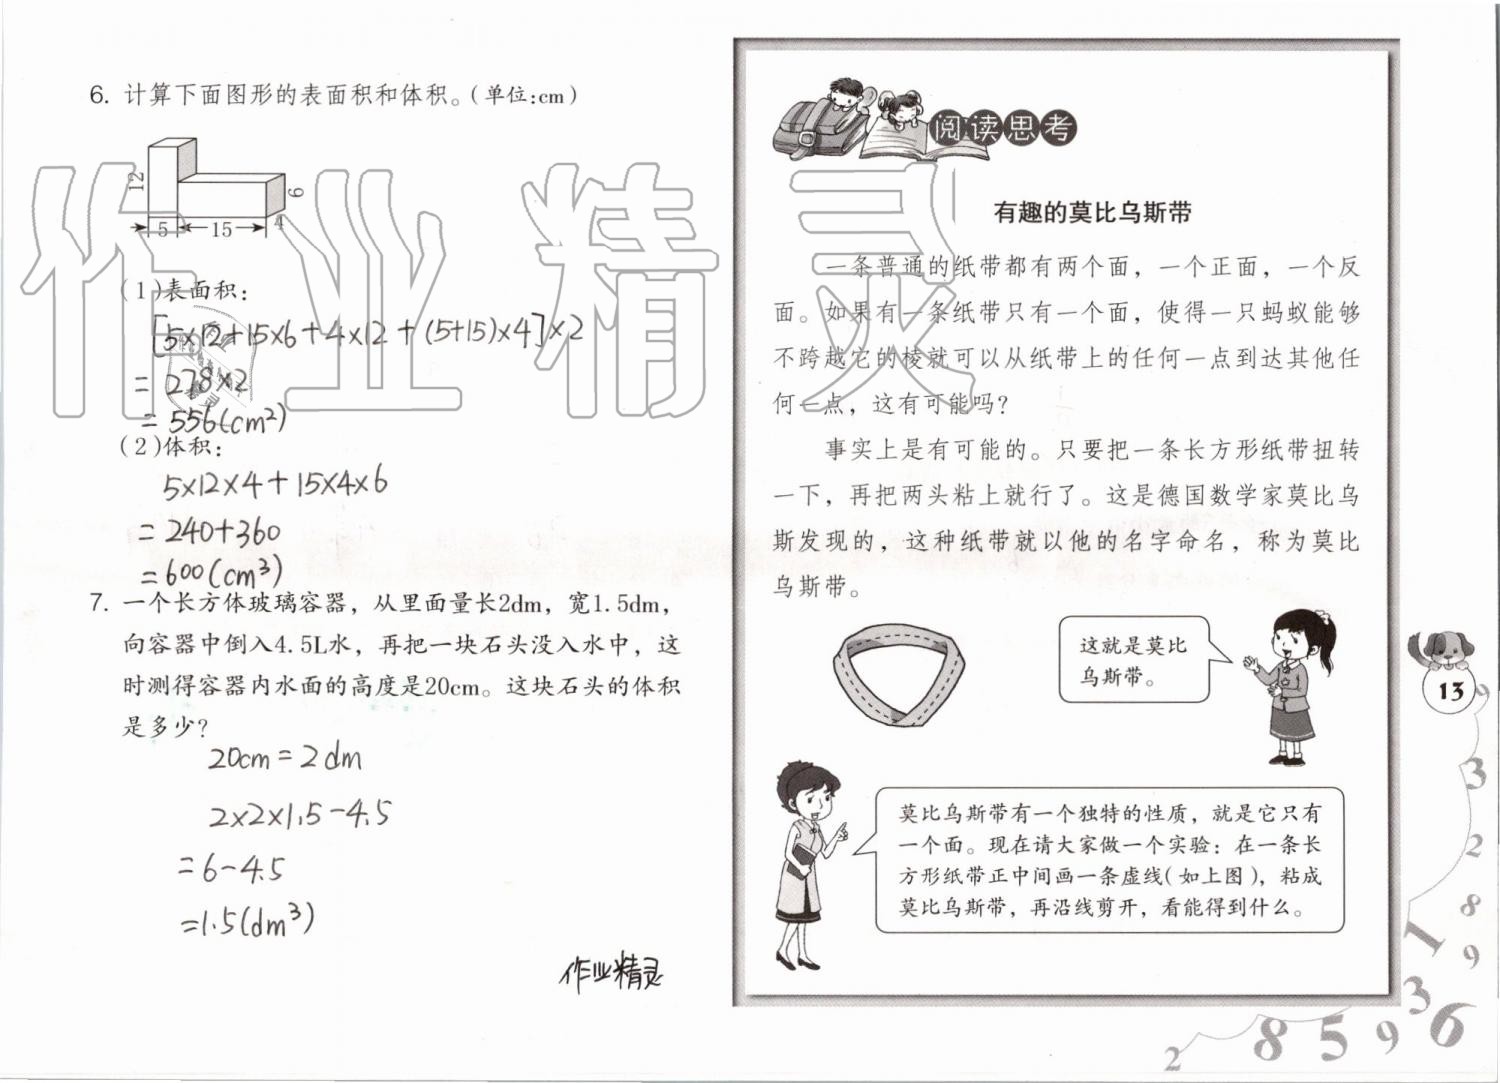 6. 计算下面图形的表面积和体积。(单位:cm)
12
6
5
15
4
(1)表面积:
[5×12+15×6+4×12+(5+15)×4]×2
=278×2
=556(cm²)
(2)体积:
5×12×4+15×4×6
=240+360
=600(cm³)
7. 一个长方体玻璃容器，从里面量长2dm，宽1.5dm，
向容器中倒入4.5L水，再把一块石头没入水中，这
时测得容器内水面的高度是20cm。这块石头的体积
是多少?
20cm=2dm
2×2×1.5-4.5
=6-4.5
=1.5(dm³)
作业精灵
作业精灵
阅读思考
有趣的莫比乌斯带
一条普通的纸带都有两个面，一个正面，一个反
面。如果有一条纸带只有一个面，使得一只蚂蚁能够
不跨越它的棱就可以从纸带上的任何一点到达其他任
何一点，这有可能吗?
事实上是有可能的。只要把一条长方形纸带扭转
一下，再把两头粘上就行了。这是德国数学家莫比乌
斯发现的，这种纸带就以他的名字命名，称为莫比
乌斯带。
这就是莫比
乌斯带。
莫比乌斯带有一个独特的性质，就是它只有
一个面。现在请大家做一个实验：在一条长
方形纸带正中间画一条虚线(如上图)，粘成
莫比乌斯带，再沿线剪开，看能得到什么。
13
9
3
2
8
1
9
3
6
9
5
8
2